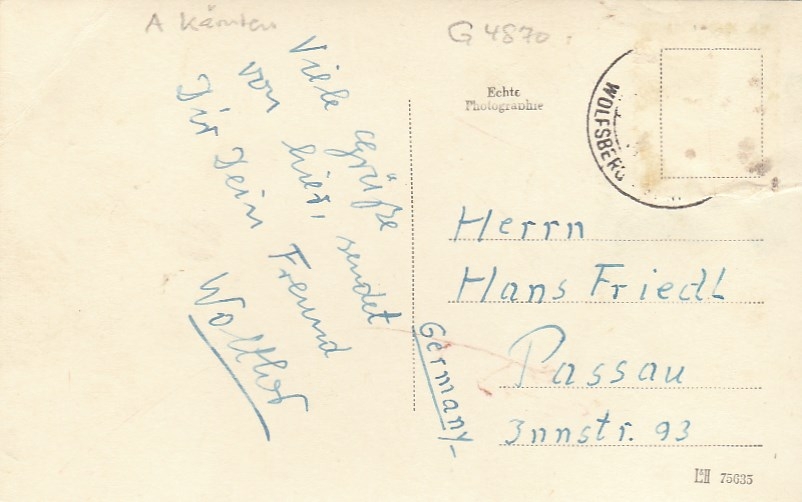 A Kärnten
G 4870
Viele Grüße
von hier, sendet
Dir Dein Freund
Walther
Echte
Photographie
WOLFSBERG
Herrn
Hans Friedl
Passau
Innstr. 93
Germany
75635